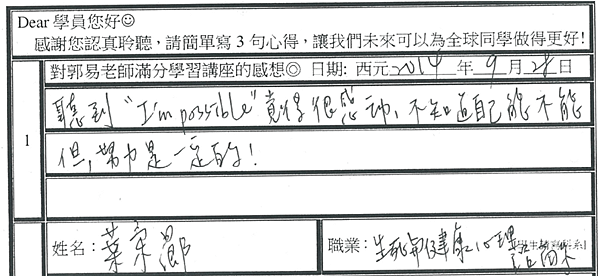 Dear 學員您好☺
感謝您認真聆聽，請簡單寫3句心得，讓我們未來可以為全球同學做得更好!
對郭易老師滿分學習講座的感想◎ 日期: 西元 2014 年 9 月 28 日
1
聽到 "I'm possible" 覺得很感動，不知道自己能不能
但，努力是一定的！
姓名： 葉宗
職業： 生死與健康心理諮商系